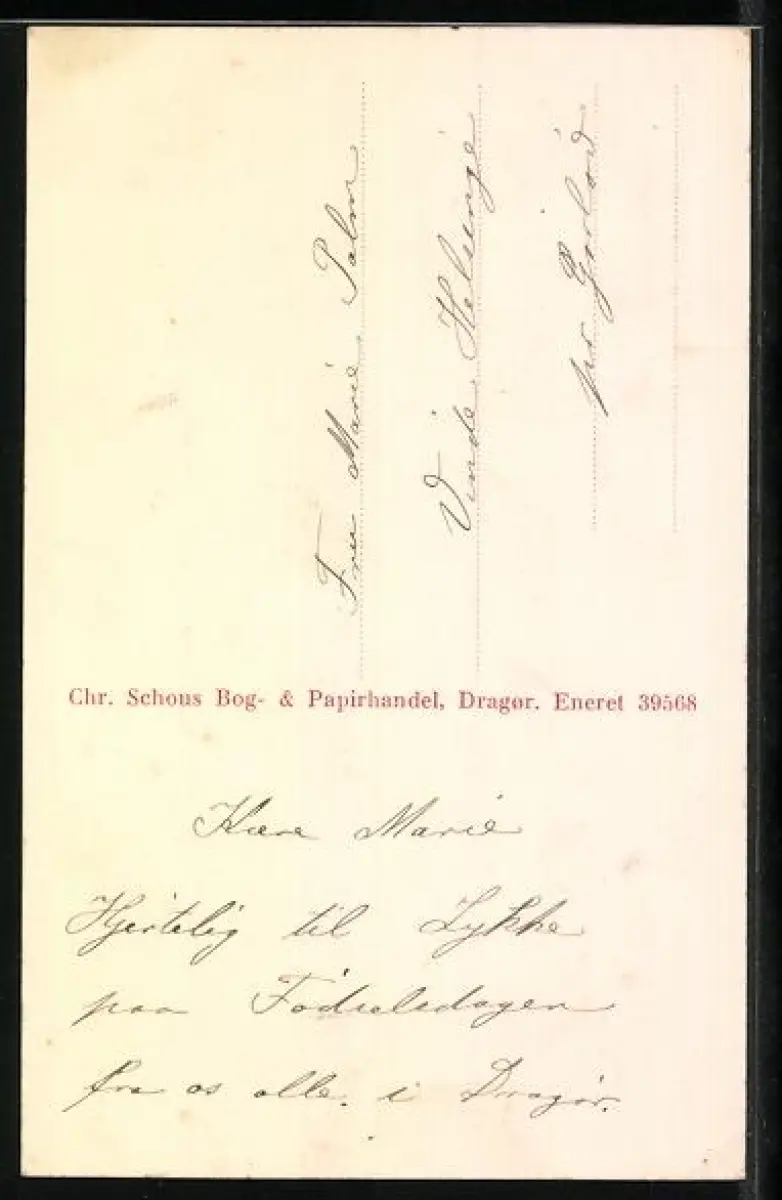 Fru Marie Palm
Vinde Helsinge
pr Gørløv
Chr. Schous Bog- & Papirhandel, Dragør. Eneret 39568
Kære Marie
Hjertelig til Lykke
paa Fødselsdagen
fra os alle i Dragør.